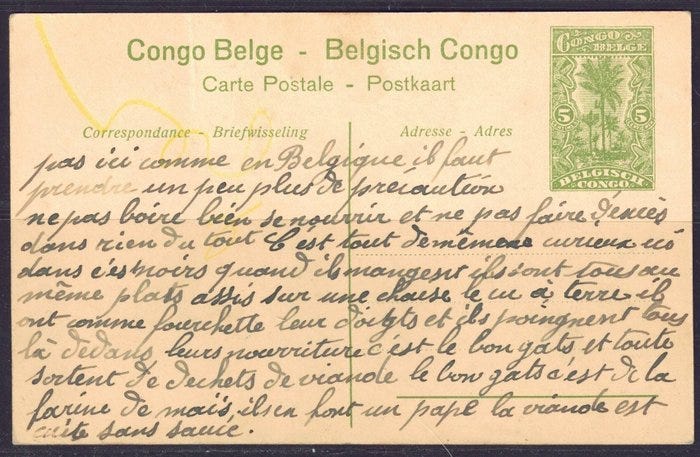 Congo Belge - Belgisch Congo
Carte Postale - Postkaart
CONGO BELGE
5 5
BELGISCH CONGO
Correspondance - Briefwisseling
Adresse - Adres
pas ici comme en Belgique il faut
prendre un peu plus de précaution
ne pas boire bien se nourrir et ne pas faire d'excès
dans rien du tout C'est tout de même curieux ici
dans ces noirs quand il mangent ils sont tous au
même plats assis sur une chaise le cu à terre il
ont comme fourchette leur doigts et ils poingnent tous
là dedans leurs nourriture c'est le bon gats et toute
sortent de dechets de viande le bon gats c'est de la
farine de maïs, ils en font un pape la viande est
cuite sans sauce.